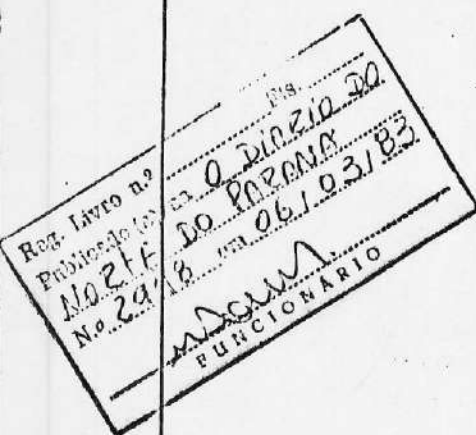 Reg. Livro n.º Fls.
Publicado (a) na O DIARIO DO
NOrtE DO PARANA
N.o 2918 em 06/03/83
FUNCIONÁRIO